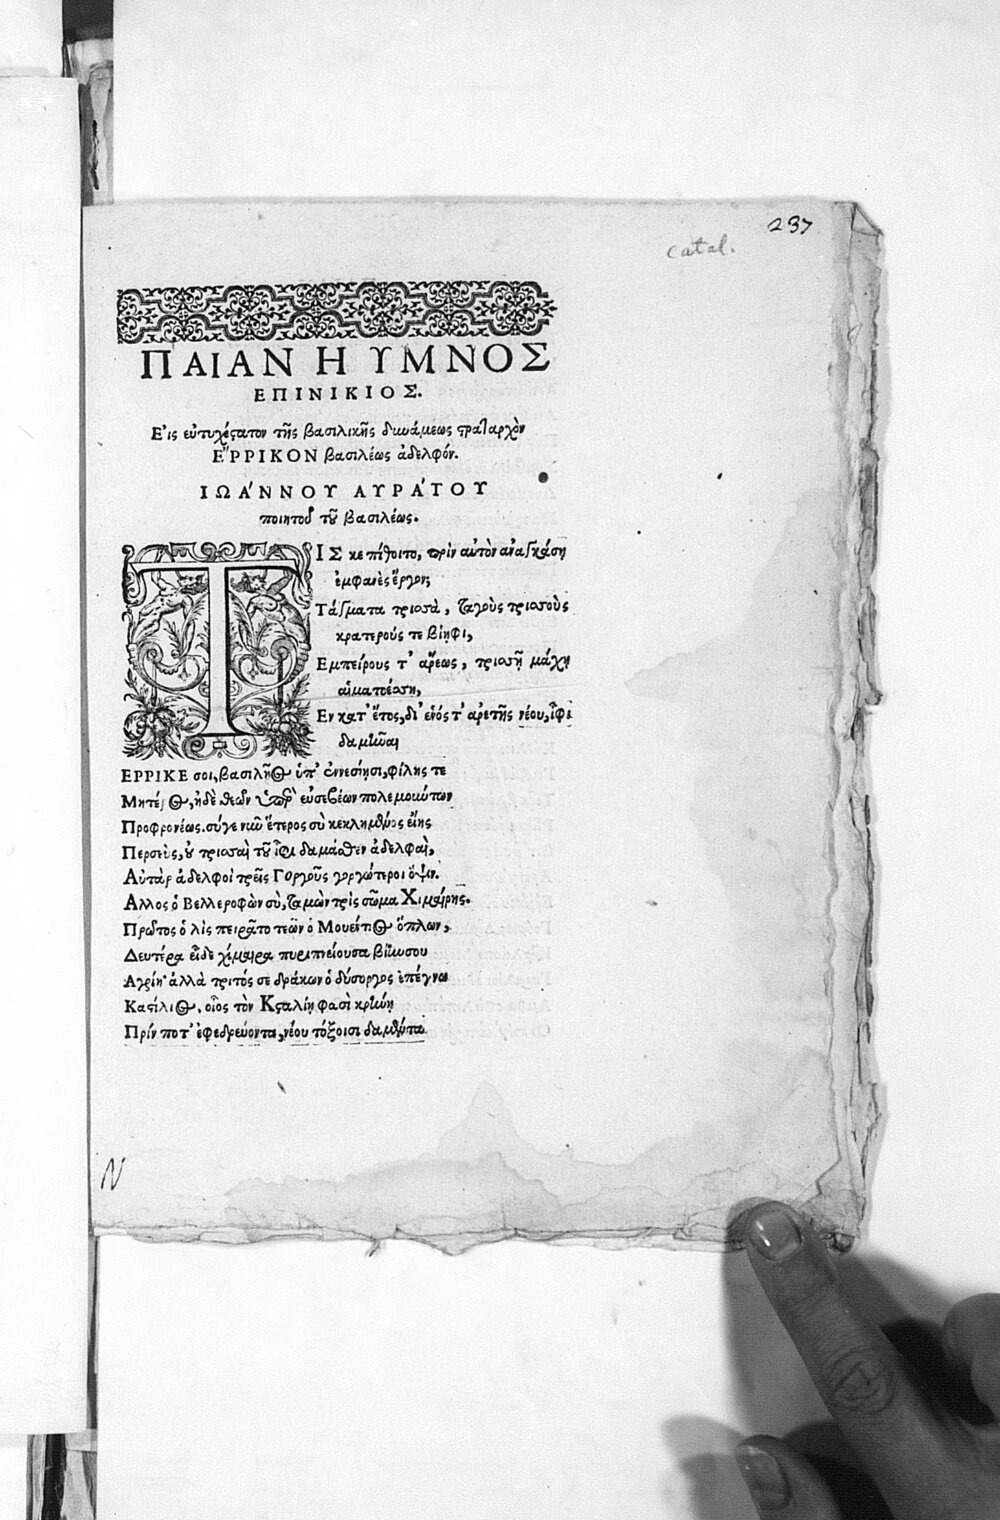 237
catal.
ΠΑΙΑΝ Η ΥΜΝΟΣ
ΕΠΙΝΙΚΙΟΣ.
Ε᾿ις εὐτυχέστατον τῆς βασιλικῆς δυνάμεως στραταρχὸν
ΕῬΡΙΚΟΝ βασιλέως ἀδελφόν.
ΙΩΑ΄ΝΝΟΥ ΑΥΡΑ΄ΤΟΥ
ποιητοῦ τοῦ βασιλέως.
ΤΙΣ κε πίθοιτο, πρὶν αὐτὸν ἀναγκάσῃ
ἐμφανὲς ἔργον;
Τάγματα τρισσὰ, ταγοὺς τρισσοὺς
κρατερούς τε βίηφι,
Εμπείρους τ' ἄρεως, τρισσῇ μάχῃ
αἱματοέσσῃ,
Εν κατ' ἔτος, δι' ἑνός τ' ἀρετῆς νέου, ἶφι
δαμῆναι
ΕΡΡΙΚΕ σοι, βασιλῆος ὑπ' ἐννεσίῃσι, φίλης τε
Μητέρος, ἠδὲ θεῶν ὑπὲρ εὐσεβέων πολεμοιώτων
Προφρονέως. σύγε νῦν ἕτερος σὺ κεκλημένος εἴης
Περσεὺς, ᾧ τρισσαὶ τοῦ ἶφι δαμάσθεν ἀδελφαὶ,
Αὐτὰρ ἀδελφοὶ τρεῖς Γοργοῦς γοργώτεροι ὄψιν.
Αλλος ὁ Βελλεροφῶν σὺ, ταμὼν τρὶς σῶμα Χιμαίρης.
Πρῶτος ὁ λὶς πειρᾶτο τεῶν ὁ Μουέντιος ὅπλων,
Δευτέρα εἶδε χίμαιρα πυριπνείουσα βίην σου
Αγρίην· ἀλλὰ τρίτός σε δράκων ὁ δύσοργος ἐπέγνω
Καστίλιος, οἷος τὸν Κασταλίῃ φασὶ κρήνῃ
Πρίν ποτ' ἐφεδρεύοντα, νέου τόξοισι δαμέντα
N